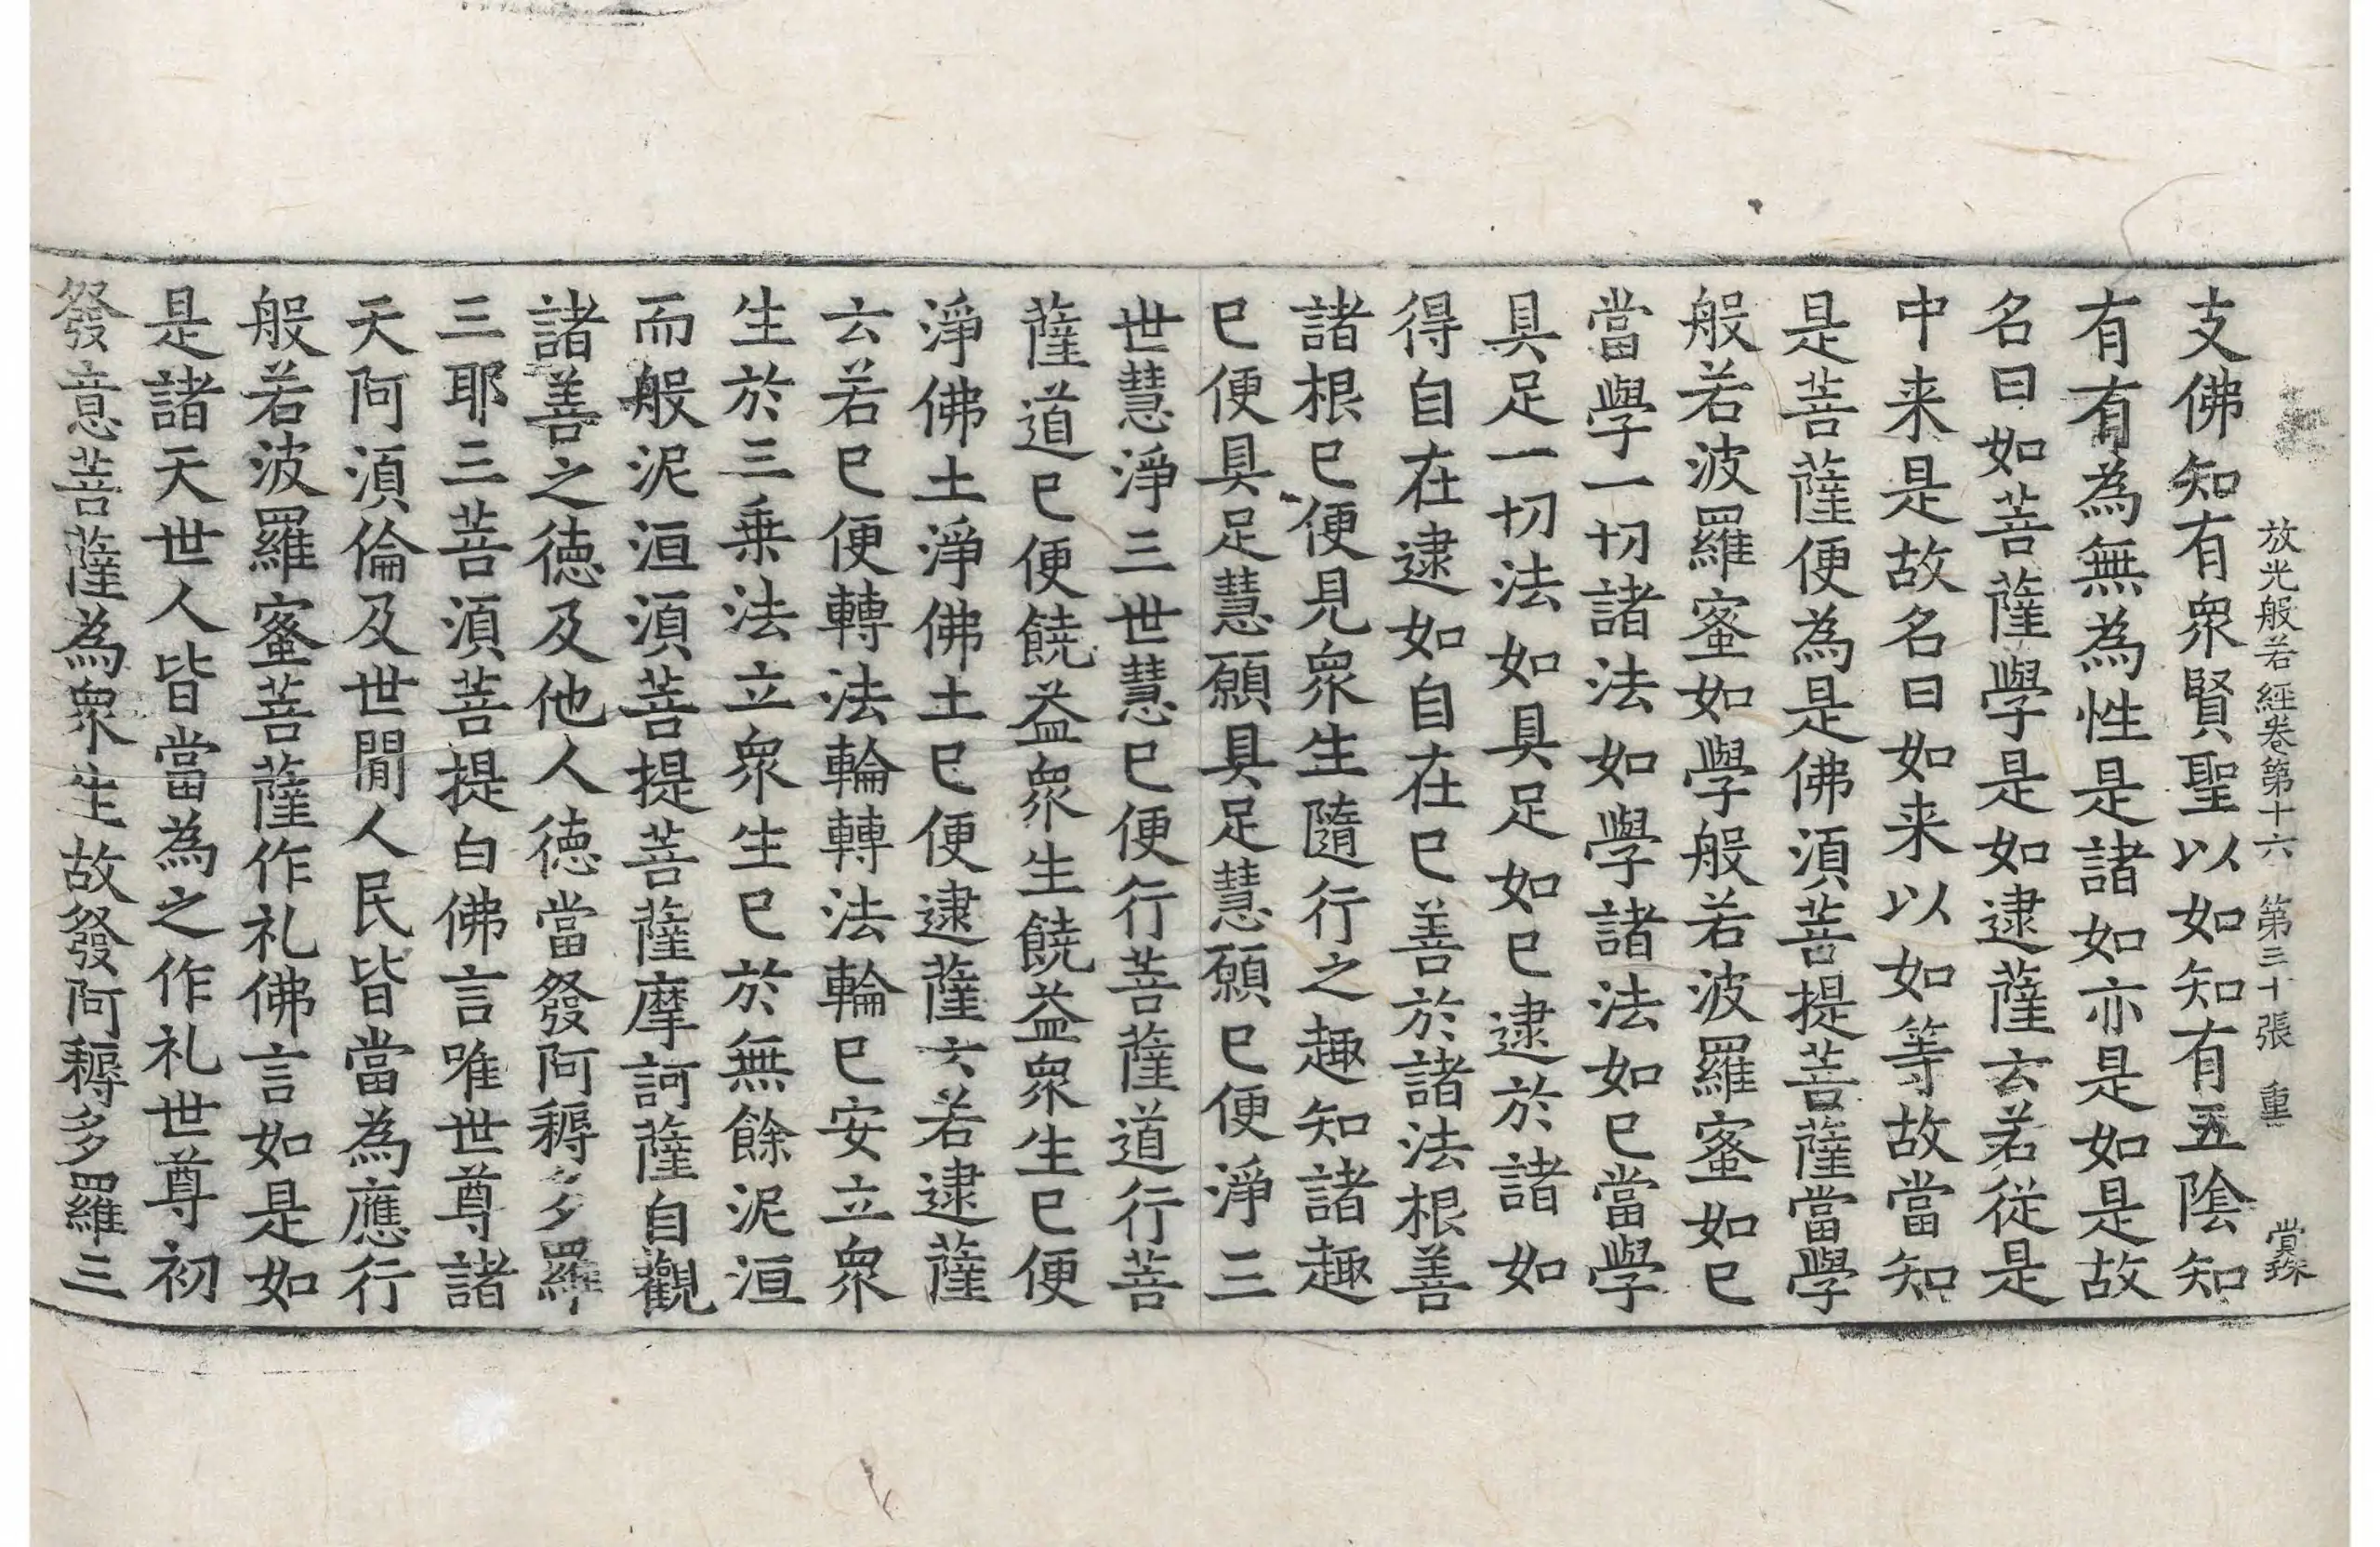 放光般若經卷第十六 第三十張 重
支佛知有衆賢聖以如知有五陰知
有有為無為性是諸如亦是如是故
名曰如菩薩學是如逮薩云若從是
中来是故名曰如来以如等故當知
是菩薩便為是佛須菩提菩薩當學
般若波羅蜜如學般若波羅蜜如已
當學一切諸法如學諸法如已當學
具足一切法如具足如已逮於諸如
得自在逮如自在已善於諸法根善
諸根已便見衆生隨行之趣知諸趣
已便具足慧願具足慧願已便淨三
世慧淨三世慧已便行菩薩道行菩
薩道已便饒益衆生饒益衆生已便
淨佛土淨佛土已便逮薩云若逮薩
云若已便轉法輪轉法輪已安立衆
生於三乗法立衆生已於無餘泥洹
而般泥洹須菩提菩薩摩訶薩自觀
諸善之德及他人德當發阿耨多羅
三耶三菩須菩提白佛言唯世尊諸
天阿須倫及世間人民皆當為應行
般若波羅蜜菩薩作礼佛言如是如
是諸天世人皆當為之作礼世尊初
發意菩薩為衆生故發阿耨多羅三